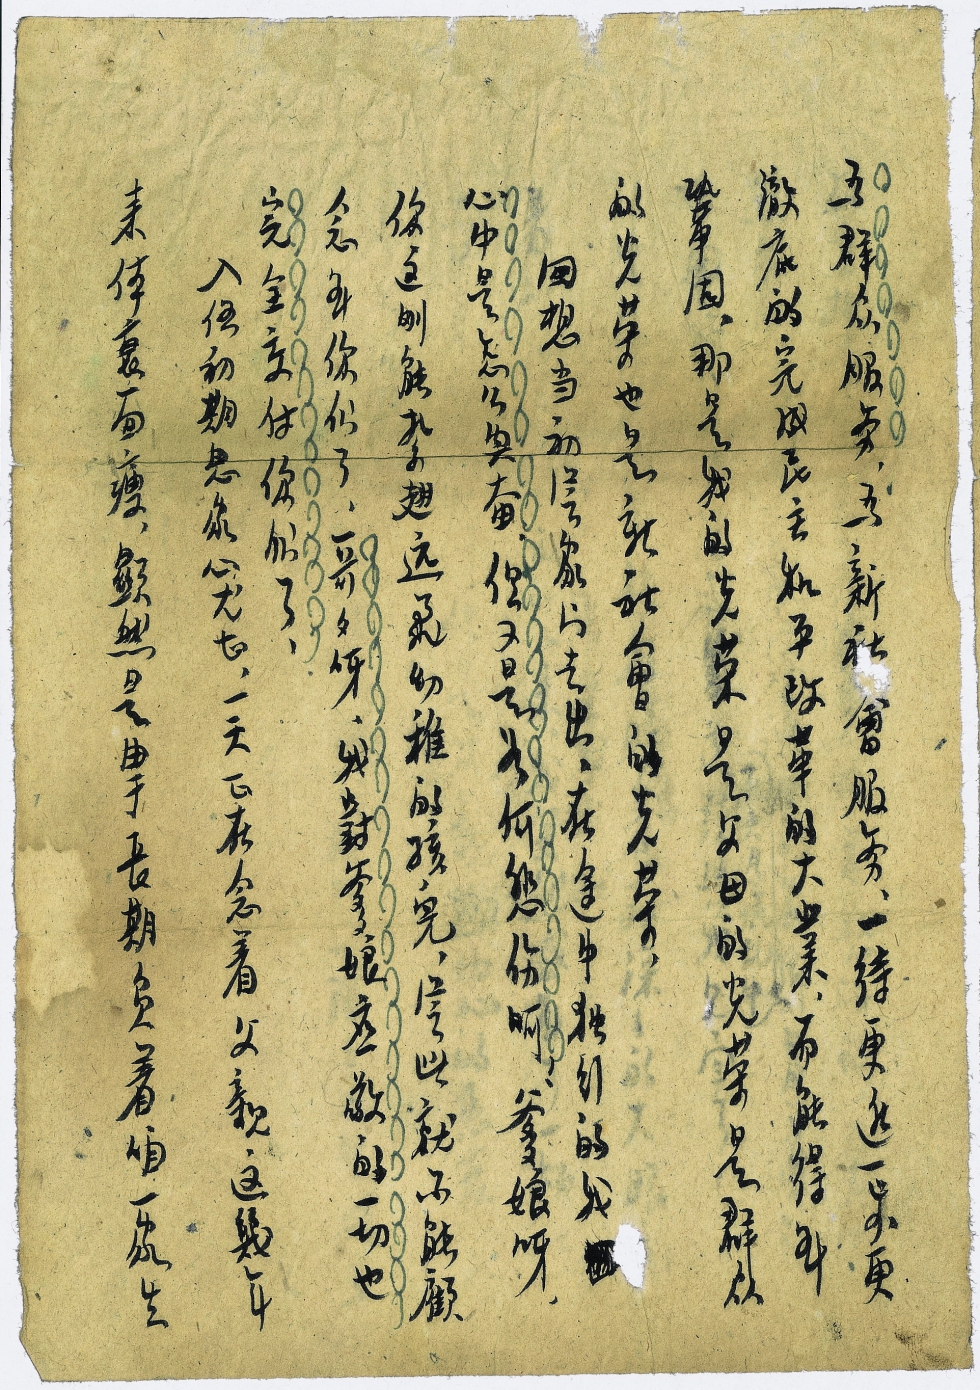 为群众服务，为新社會服务，一待更进一步更
澈底的完成民主和平改革的大業，而能得到
鞏固，那是我的光荣是父母的光荣是群众
的光荣也是新社會的光荣，
回想当初從家门走出，在途中独引的我
心中是怎么兴奋，但又是如何悲伤啊，爹娘呀，
你这刚能扎翅远飛幼稚的孩兒，從此就不能顧
念到你们了，哥々呀，我對爹娘应敬的一切也
完全交付你们了，
入伍初期思家心尤切，一天正在念着父親这幾年
来体衰面瘦，顯然是由于長期负着咱一家生